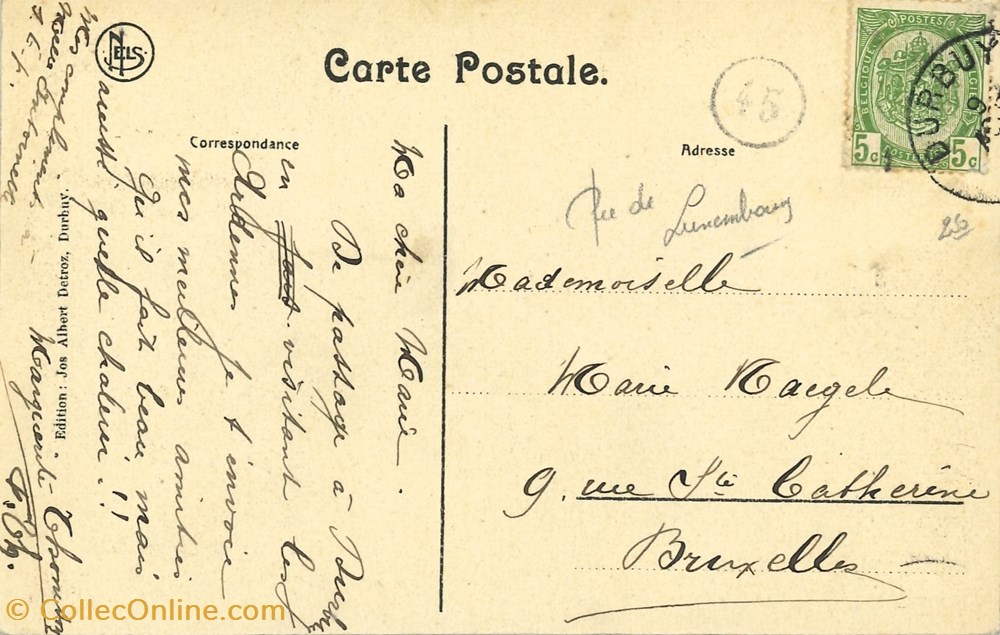 NELS
Carte Postale.
Correspondance
Adresse
45
BELGIQUE POSTES BELGIE
5c POSTERIJEN 5c
DURBUY
Rue de
Luxembourg
Mademoiselle
Marie Naegele
9. rue Ste Catherine
Bruxelles
Ma chère Marie.
De passage à Durbuy
en faut visitant les
Ardennes je t'envoie
mes meilleures amitiés
Qu'il fait beau mais
aussi quelle chaleur!!
Marguerite
Mes compliments
Edition: Jos Albert Detroz, Durbuy.
© CollecOnline.com